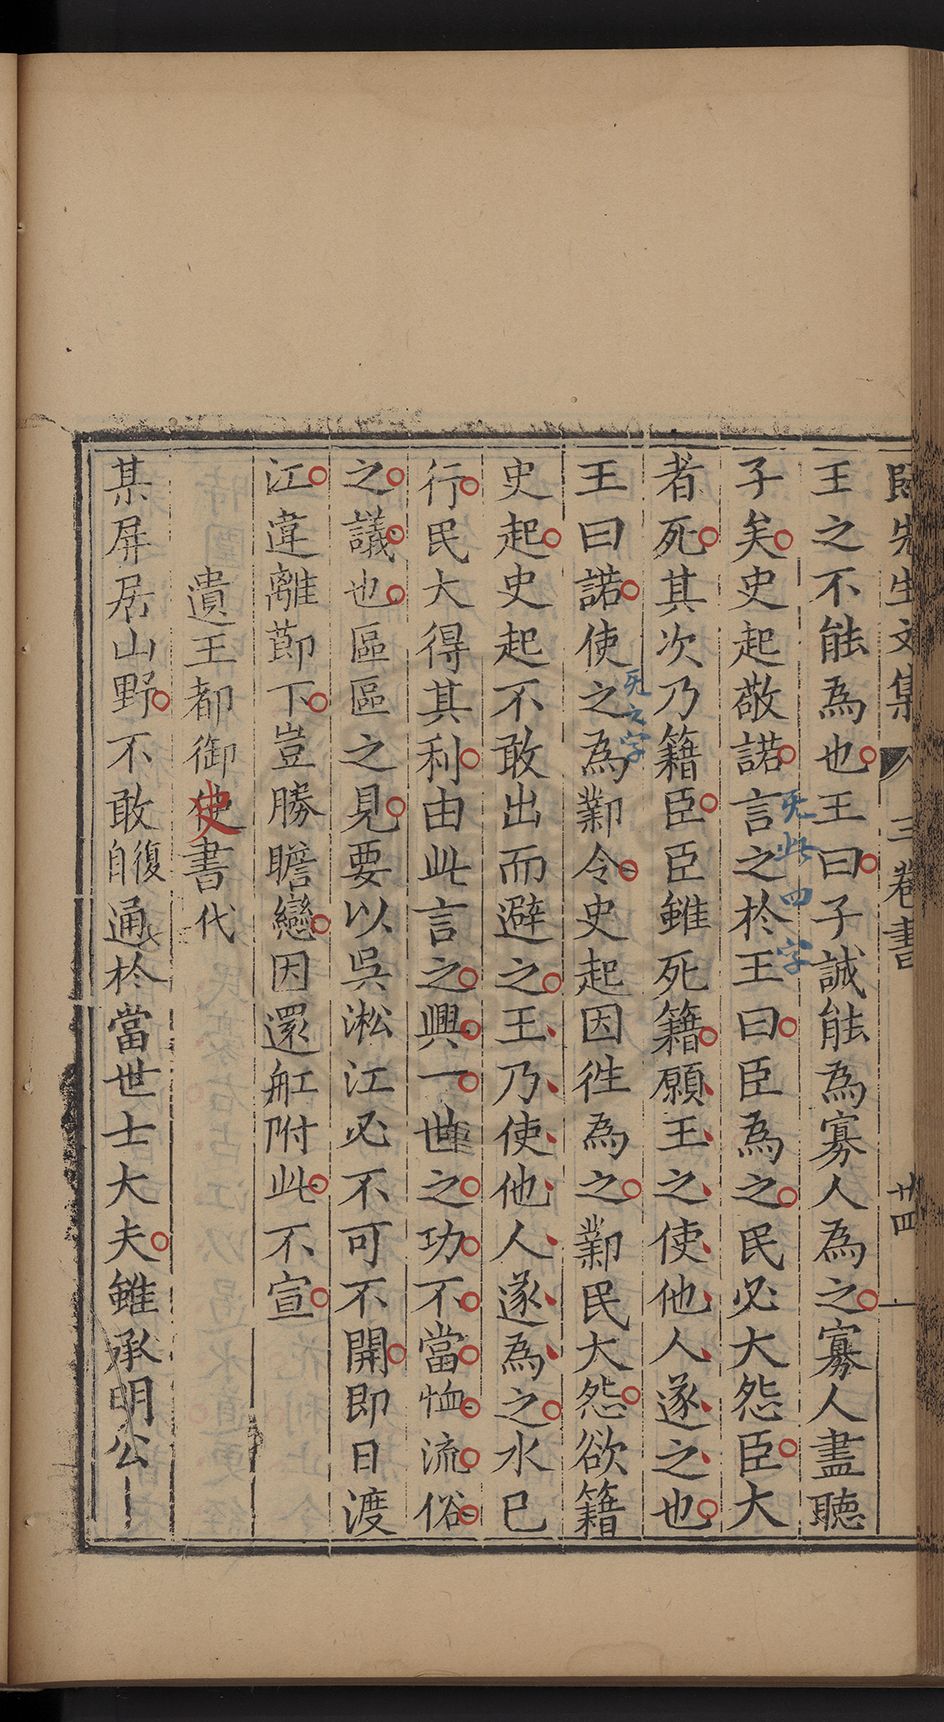 歸先生文集 三卷書 廿四
王之不能為也王曰子誠能為寡人為之寡人盡聽
子矣史起敬諾言之於王曰臣為之民必大怨臣大
无此四字
者死其次乃籍臣臣雖死籍願王之使他人遂之也
王曰諾使之為鄴令史起因徃為之鄴民大怨欲籍
无之字
史起史起不敢出而避之王乃使他人遂為之水已
行民大得其利由此言之興一世之功不當恤流俗
之議也區區之見要以吳淞江必不可不開即日渡
江違離節下豈勝瞻戀因還舡附此不宣
遺王都御史書代
某屏居山野不敢復自通於當世士大夫雖承明公一